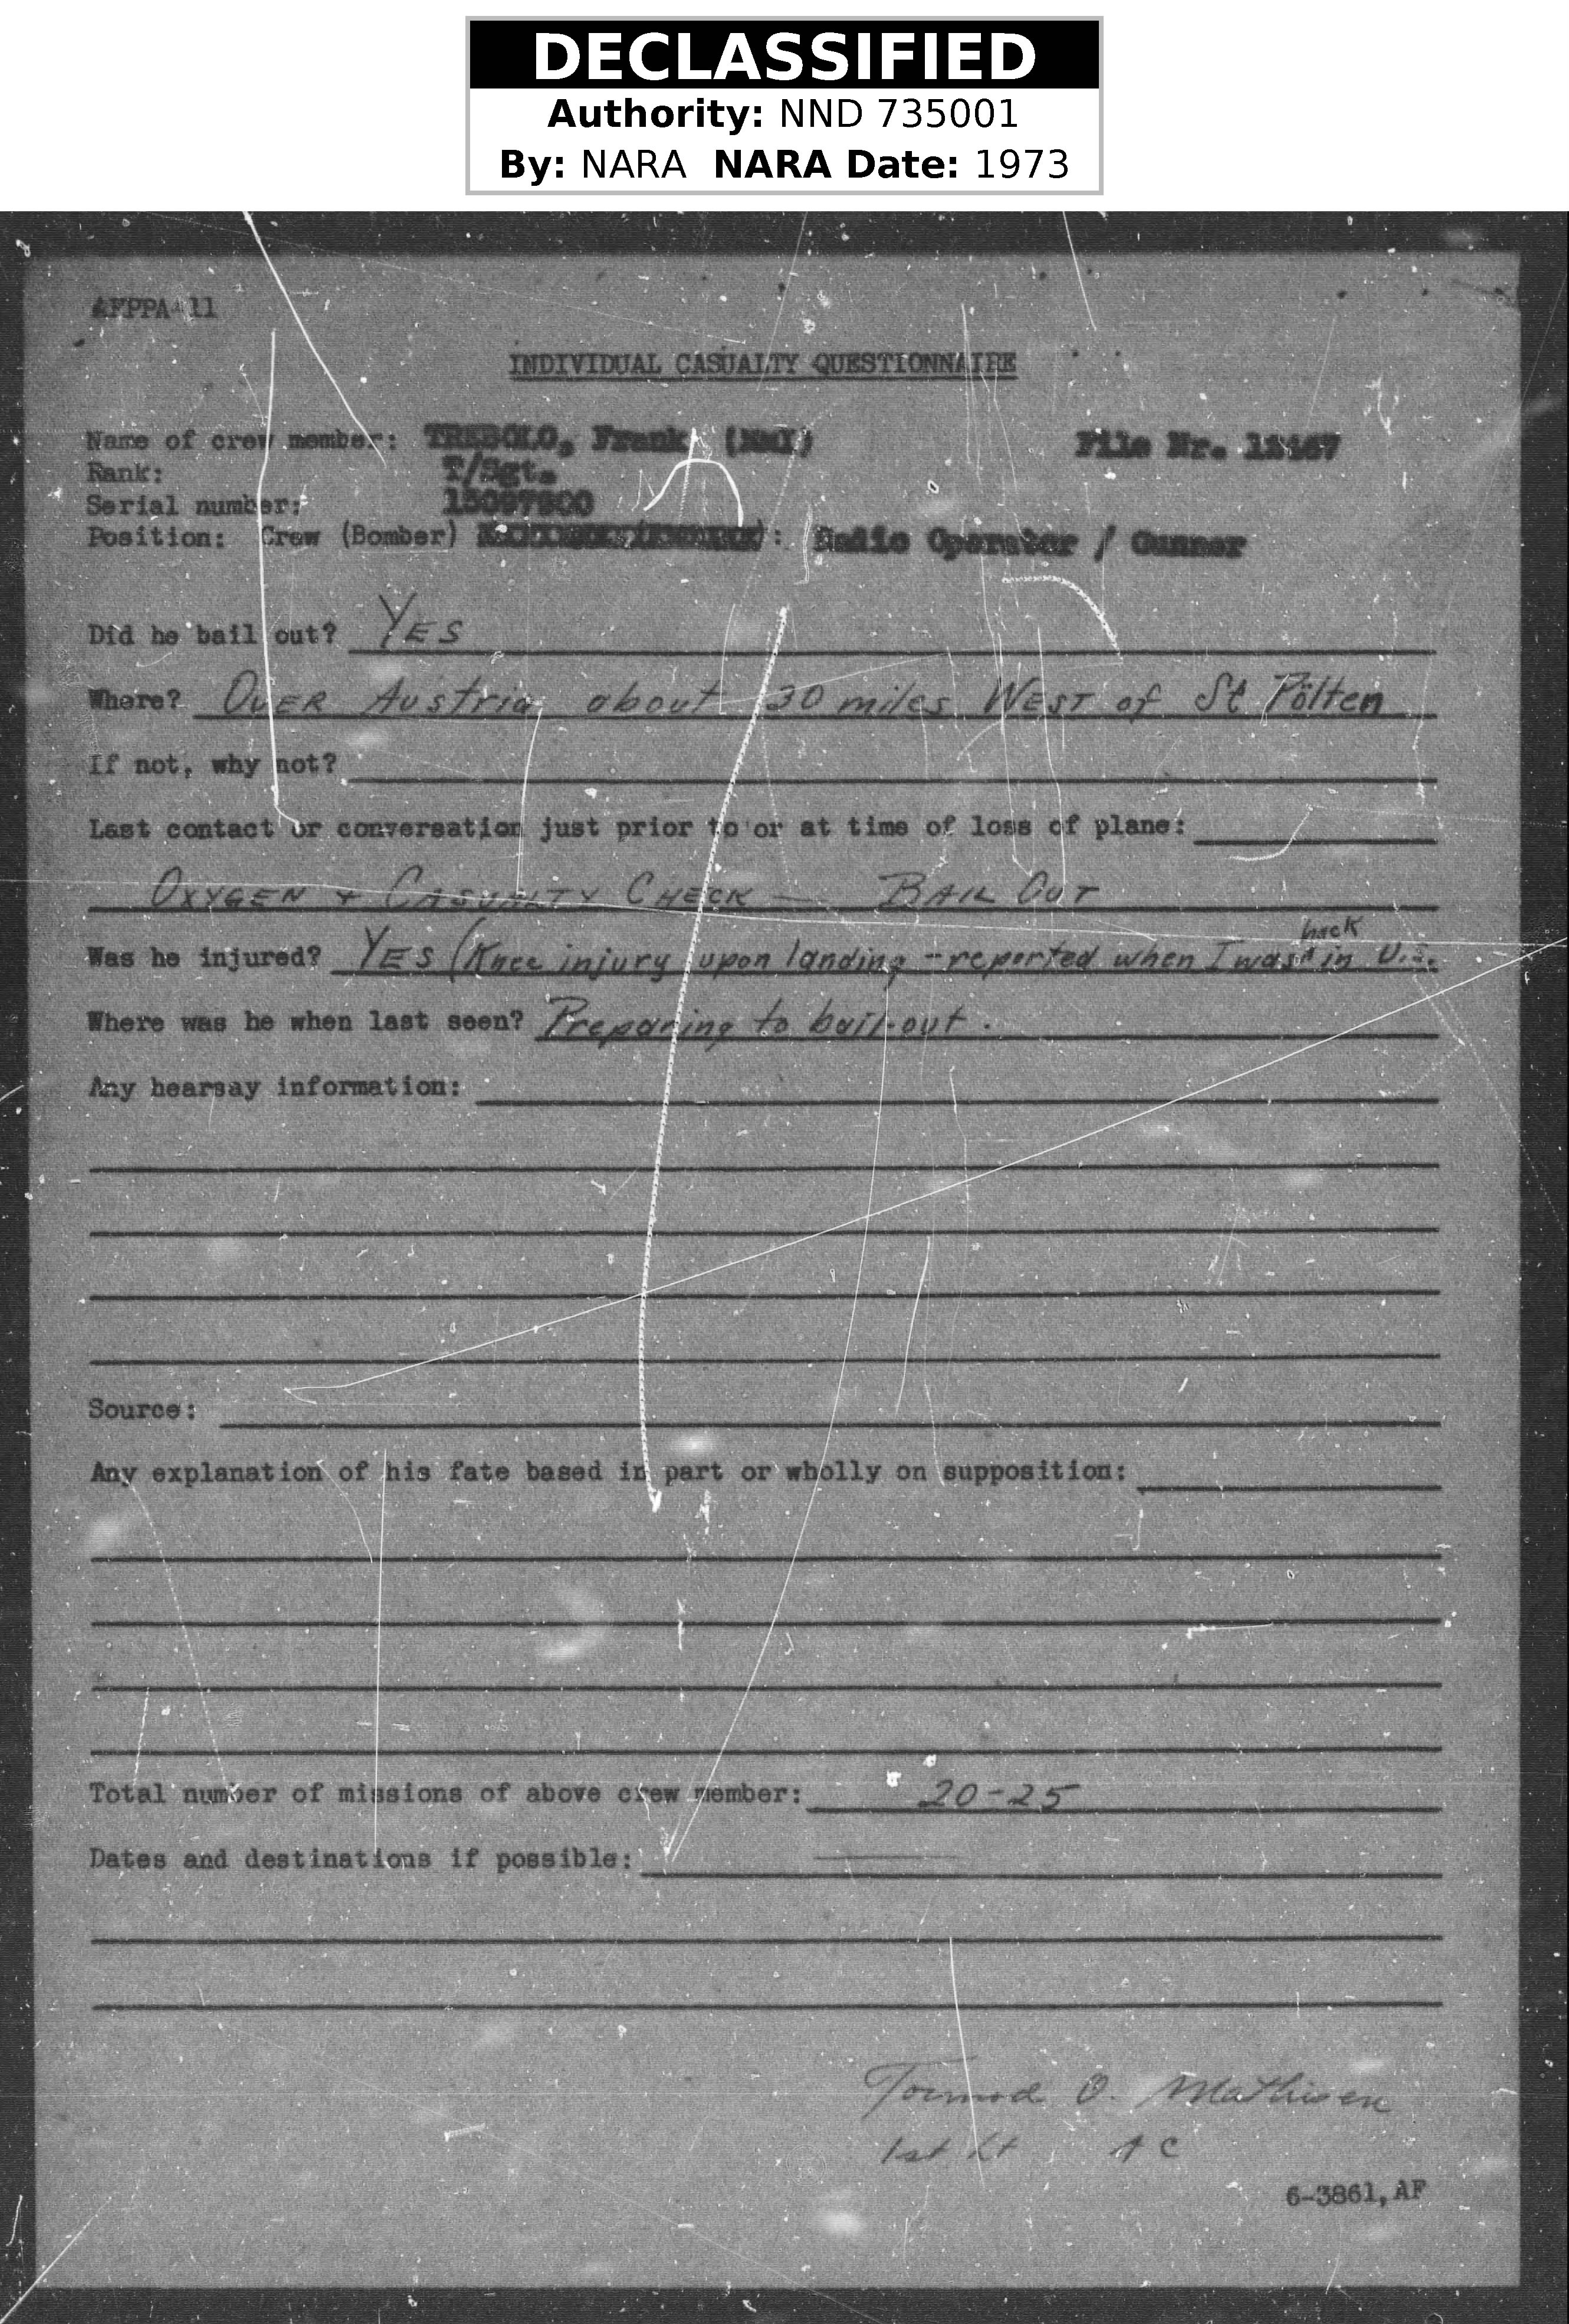 DECLASSIFIED
Authority: NND 735001
By: NARA NARA Date: 1973
AFPPA-11
INDIVIDUAL CASUALTY QUESTIONNAIRE
Name of crew member: TREBOLO, Frank (NMI) File Nr.
Rank: T/Sgt.
Serial number: 13097900
Position: Crew (Bomber) : Radio Operator / Gunner
Did he bail out? YES
Where? OVER Austria about 30 miles WEST of St Pölten
If not, why not?
Last contact or conversation just prior to or at time of loss of plane:
OXYGEN + CASUALTY CHECK — BAIL OUT
Was he injured? YES (Knee injury upon landing -- reported when I was back in U.S.
Where was he when last seen? Preparing to bail-out.
Any hearsay information:
Source:
Any explanation of his fate based in part or wholly on supposition:
Total number of missions of above crew member: 20-25
Dates and destinations if possible: —
Tormod O. Mathisen
1st Lt AC
6-3861, AF